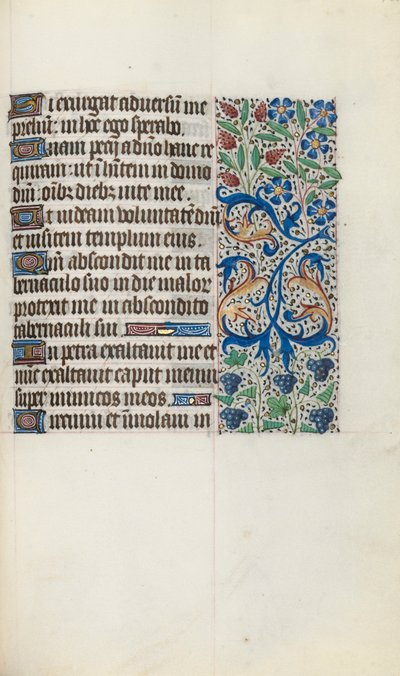 Si exurgat adversu͂ me
preliu͂: in hoc ego sperabo.
Unam pecij a dn͂o hanc re
quiram: ut in͂h͂tem in domo
dn͂i oi͂b͂z dieb͂z vite mee.
Ut videam voluntate͂ dn͂i
et visitem templum eius.
Qm͂ abscondit me in ta
bernaculo suo in die malor͂
protexit me in abscondito
tabernaculi sui
In petra exaltavit me et
nu͂c exaltavit caput meum
super inimicos meos.
Circuivi et i͂molavi in